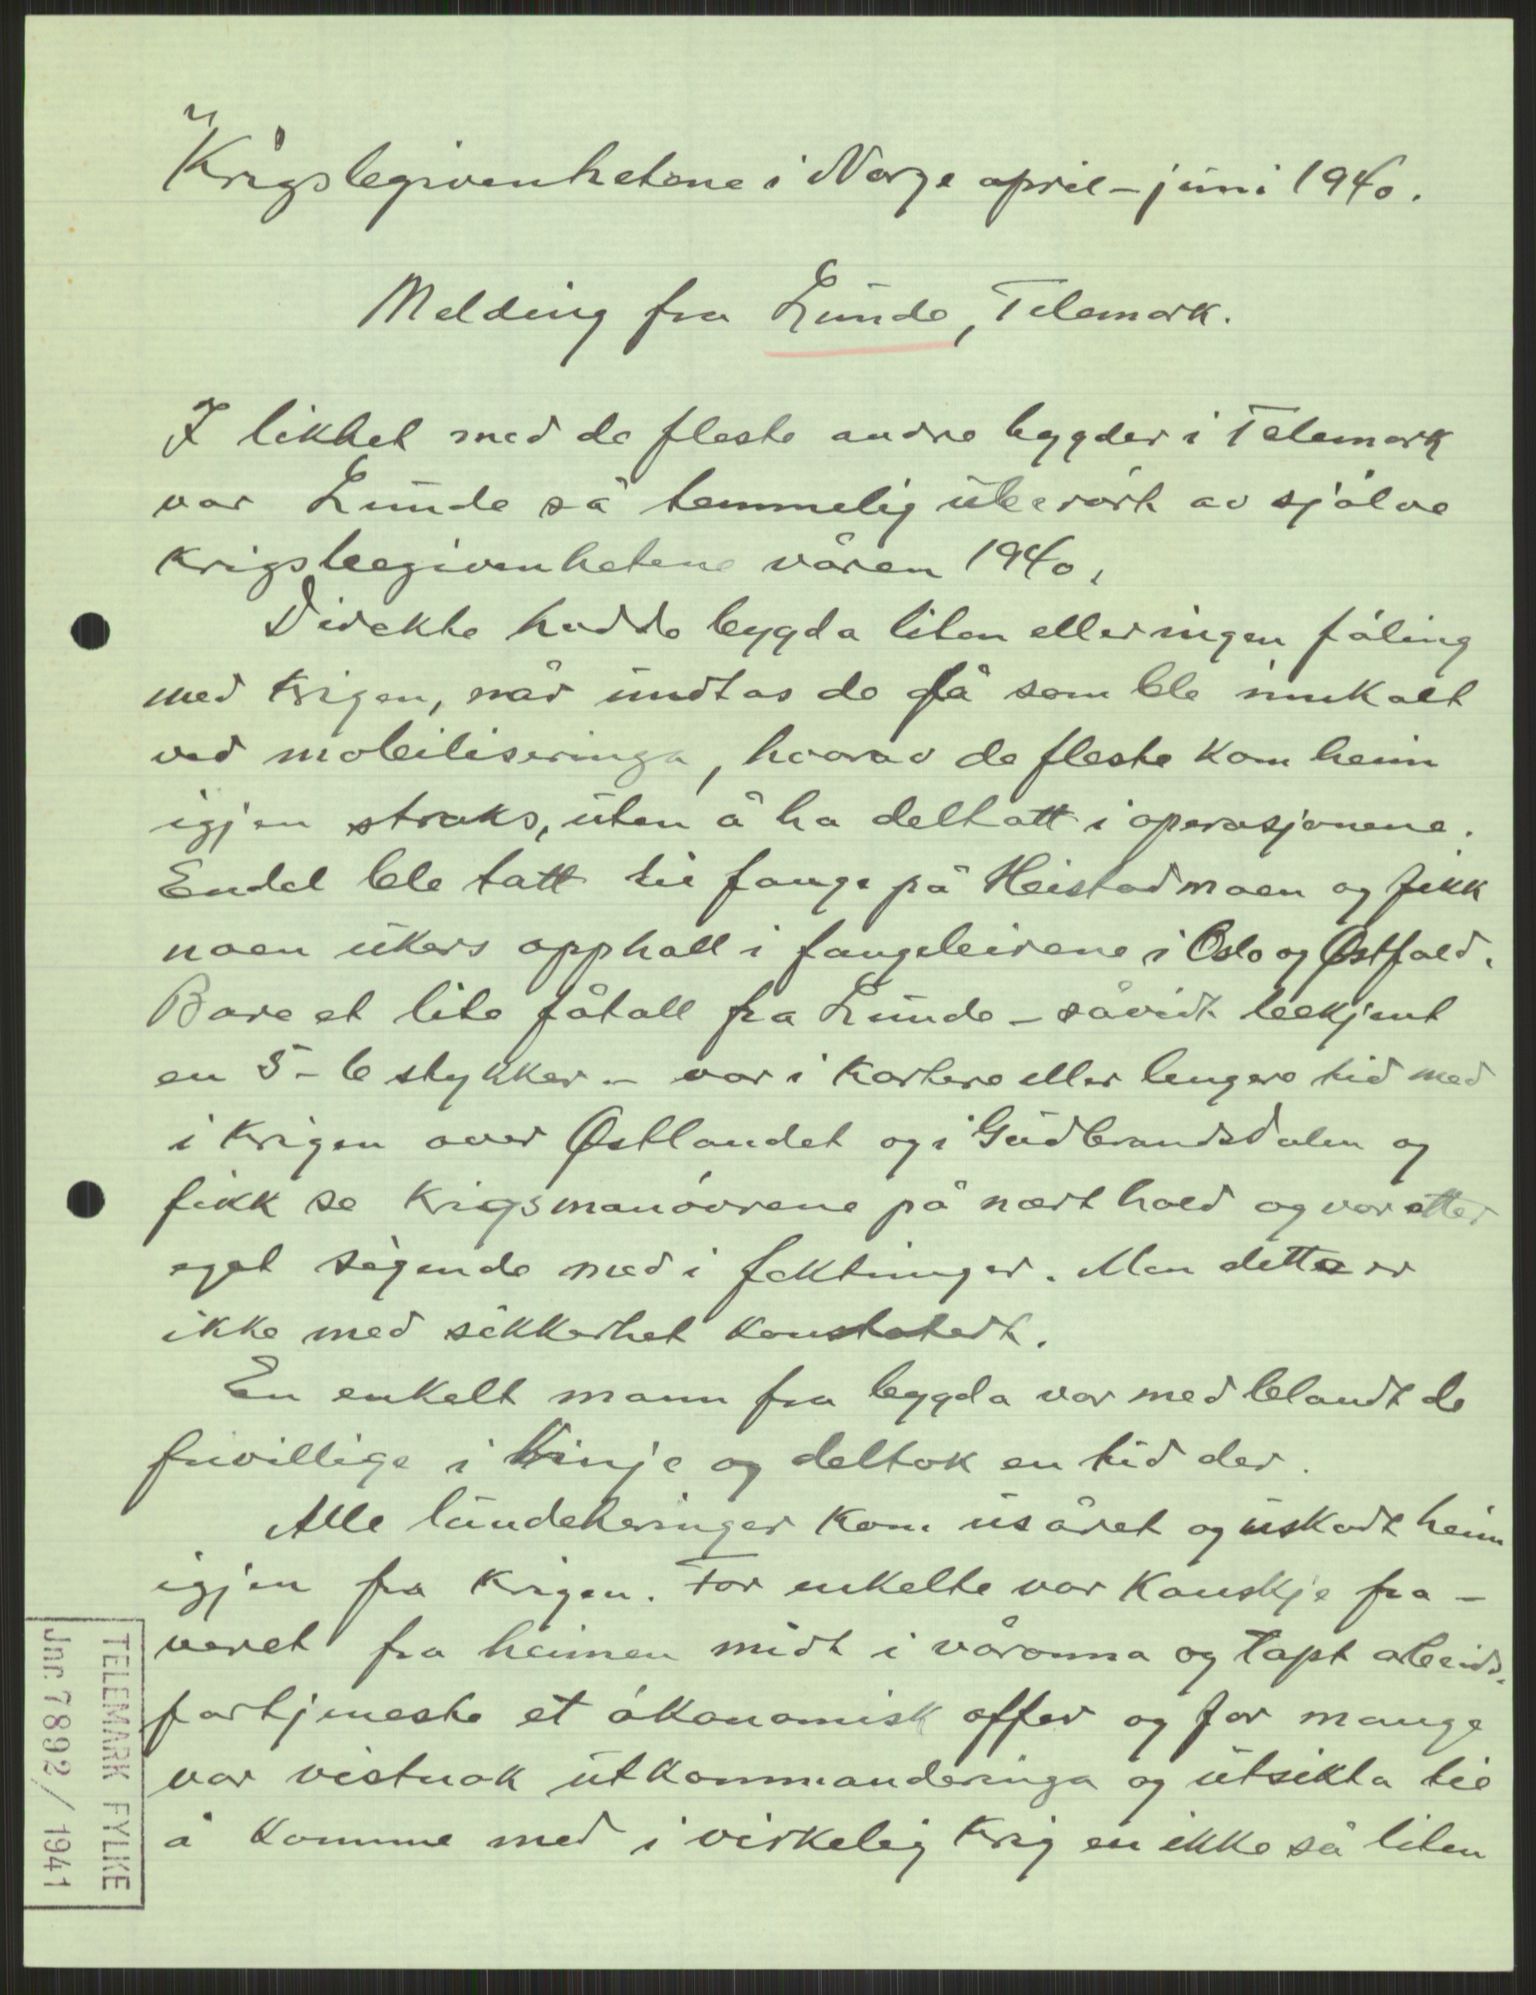 "Krigsbegivenhetene i Norge april – juni 1940.
Melding fra Lunde, Telemark.
I likhet med de fleste andre bygder i Telemark
var Lunde så temmelig uberørt av sjølve
krigsbegivenhetene våren 1940.
Direkte hadde bygda liten eller ingen føling
med krigen, når undtas de få som ble innkalt
ved mobiliseringa, hvorav de fleste kom heim
igjen straks, uten å ha deltatt i operasjonene.
Endel ble tatt til fange på Heistadmoen og fikk
noen ukers opphall i fangeleirene i Oslo og Østfold.
Bare et lite fåtall fra Lunde – såvidt bekjent
en 5 – 6 stykker – var i kortere eller lengere tid med
i krigen over Østlandet og i Gudbrandsdalen og
fikk se krigsmanøvrene på nært hold og var etter
eget sigende med i fektninger. Men dette er
ikke med sikkerhet konstatert.
En enkelt mann fra bygda var med blandt de
frivillige i Vinje og deltok en tid der.
Alle lundeheringer kom usåret og uskadt heim
igjen fra krigen. For enkelte var kanskje fra-
været fra heimen midt i våronna og tapt arbeids-
fortjeneste et økonomisk offer og for mange
var vistnok utkommanderinga og utsikta til
å komme med i virkelig krig en ikke så liten
TELEMARK FYLKE
Jnr. 7892 / 1941